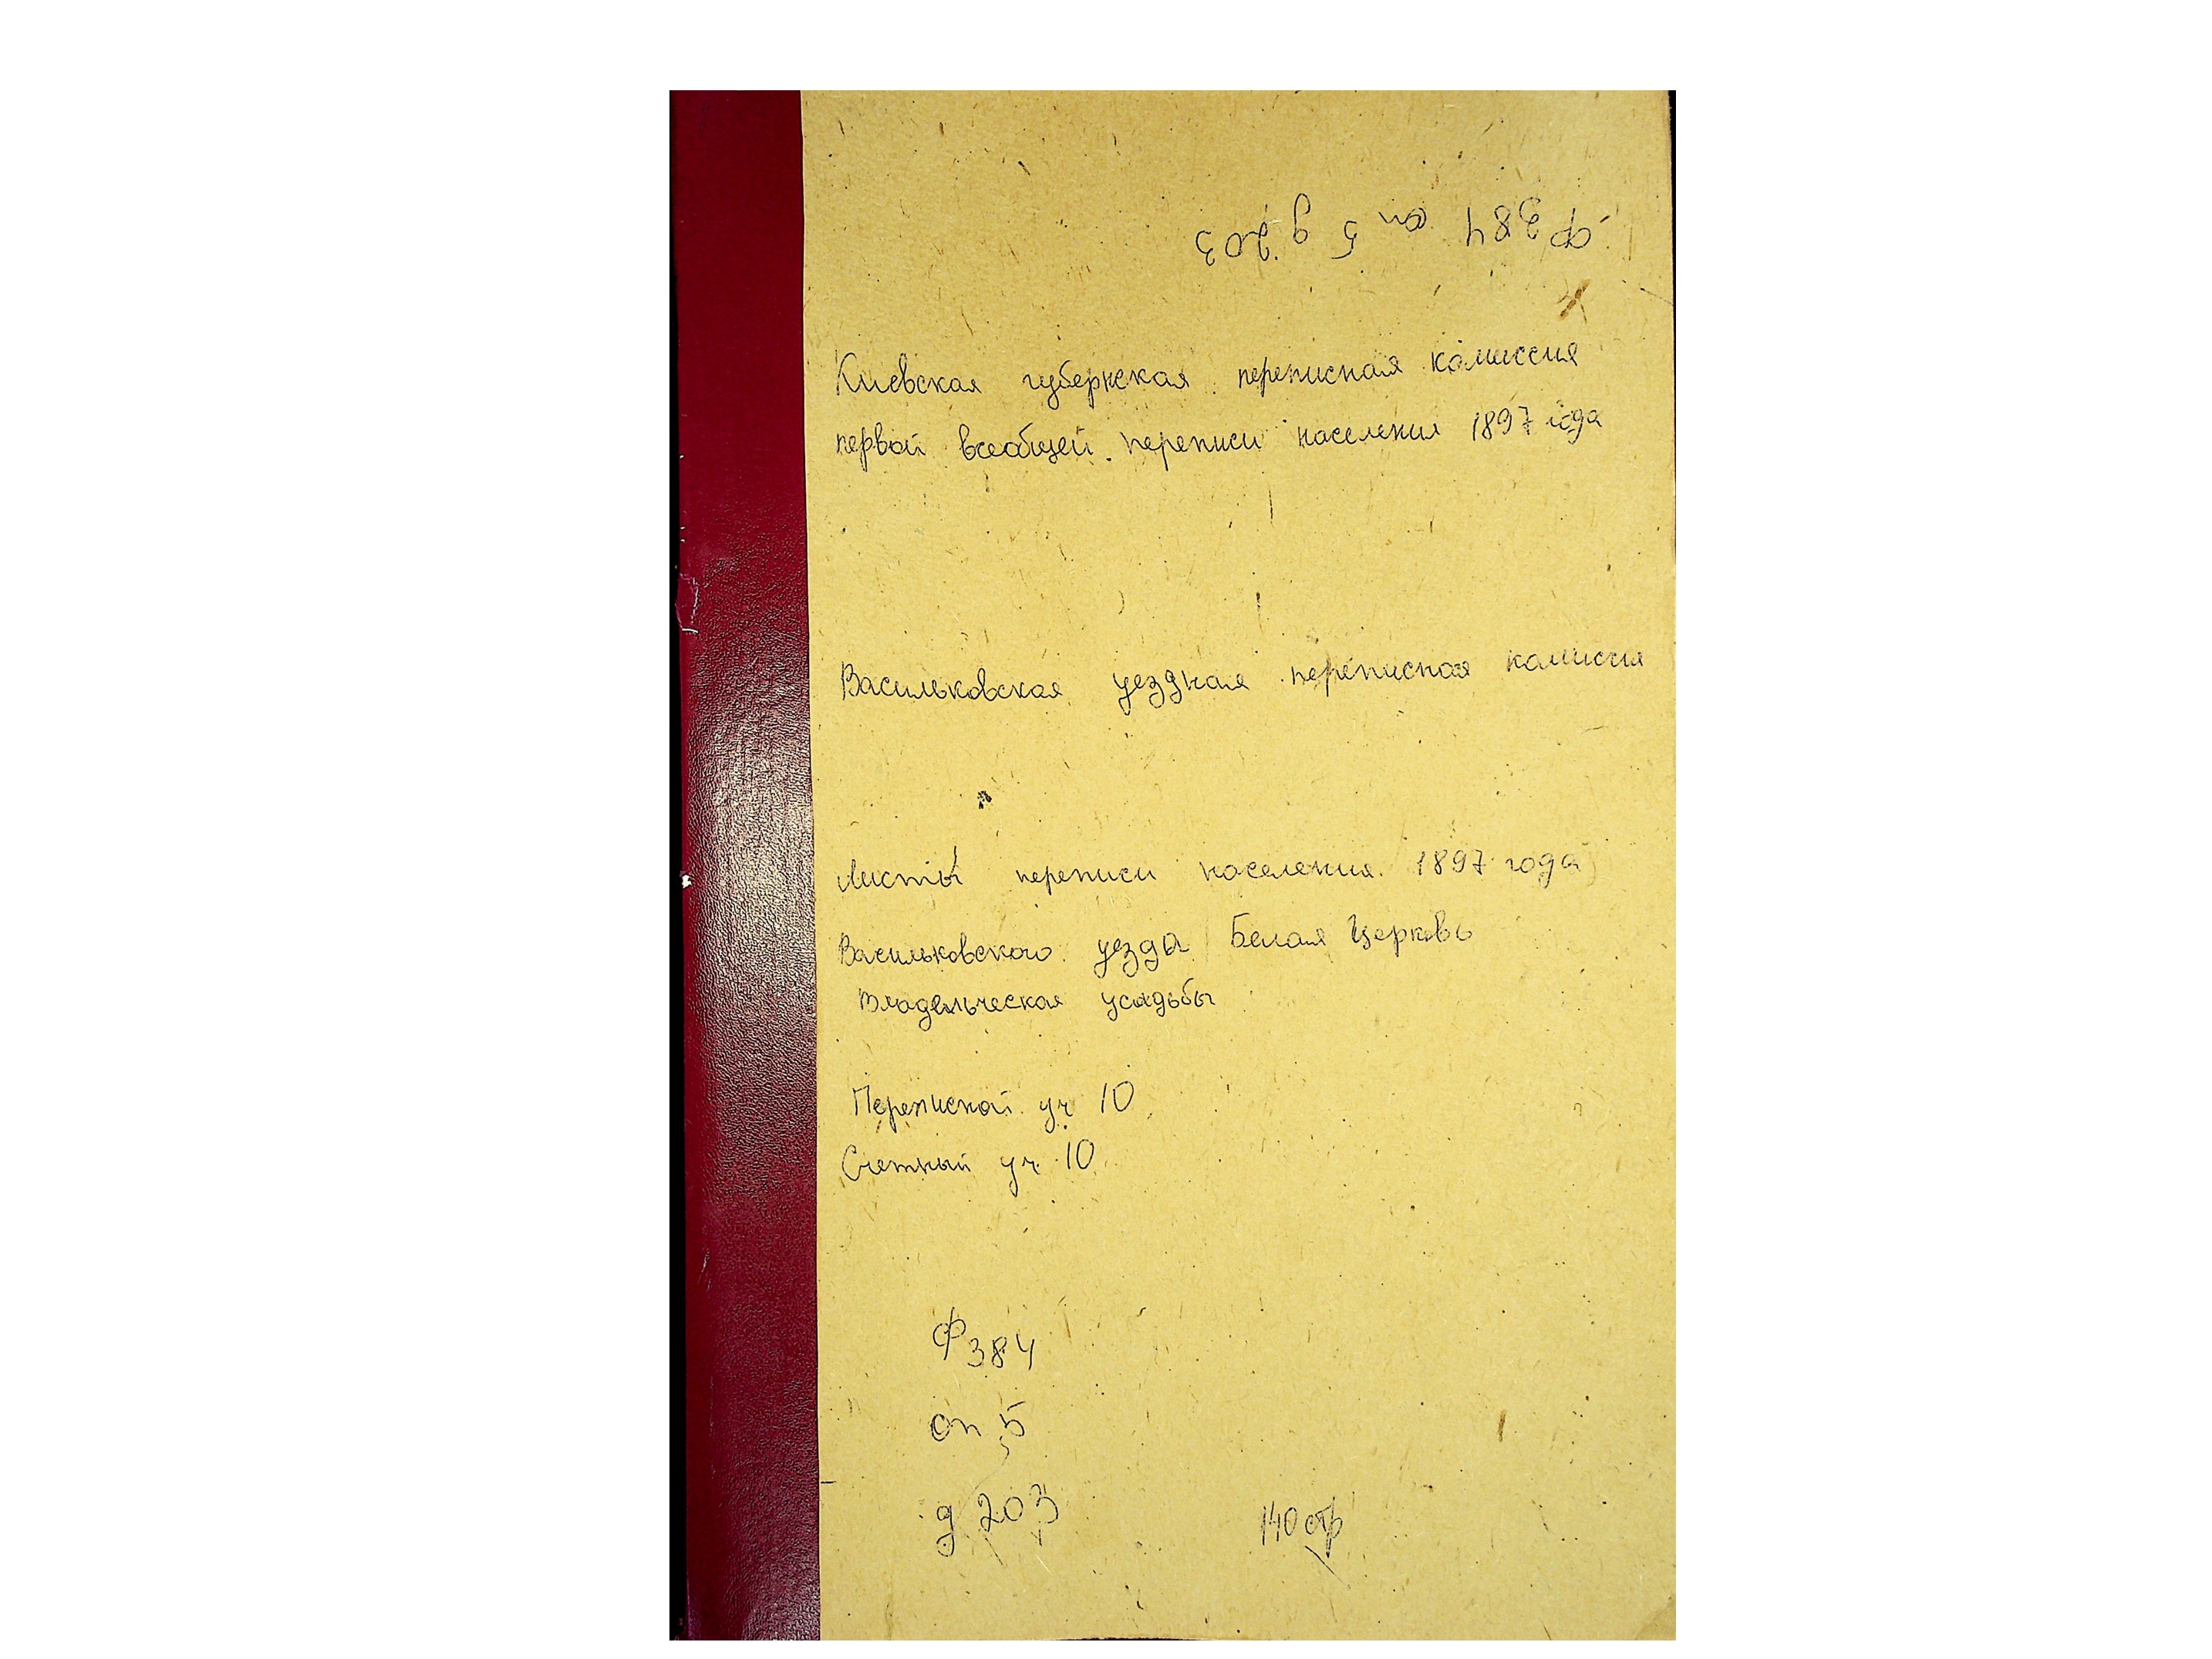 Ф 384 оп 5 д 203
Киевская губернская переписная комиссия
первой всеобщей переписи населения 1897 года
Васильковская уездная переписная комиссия
Листы переписи населения 1897 года
Васильковского уезда Белая Церковь
Владельческая усадьбы
Переписной уч 10
Счетный уч 10
Ф 384
оп 5
д 203
140 стр